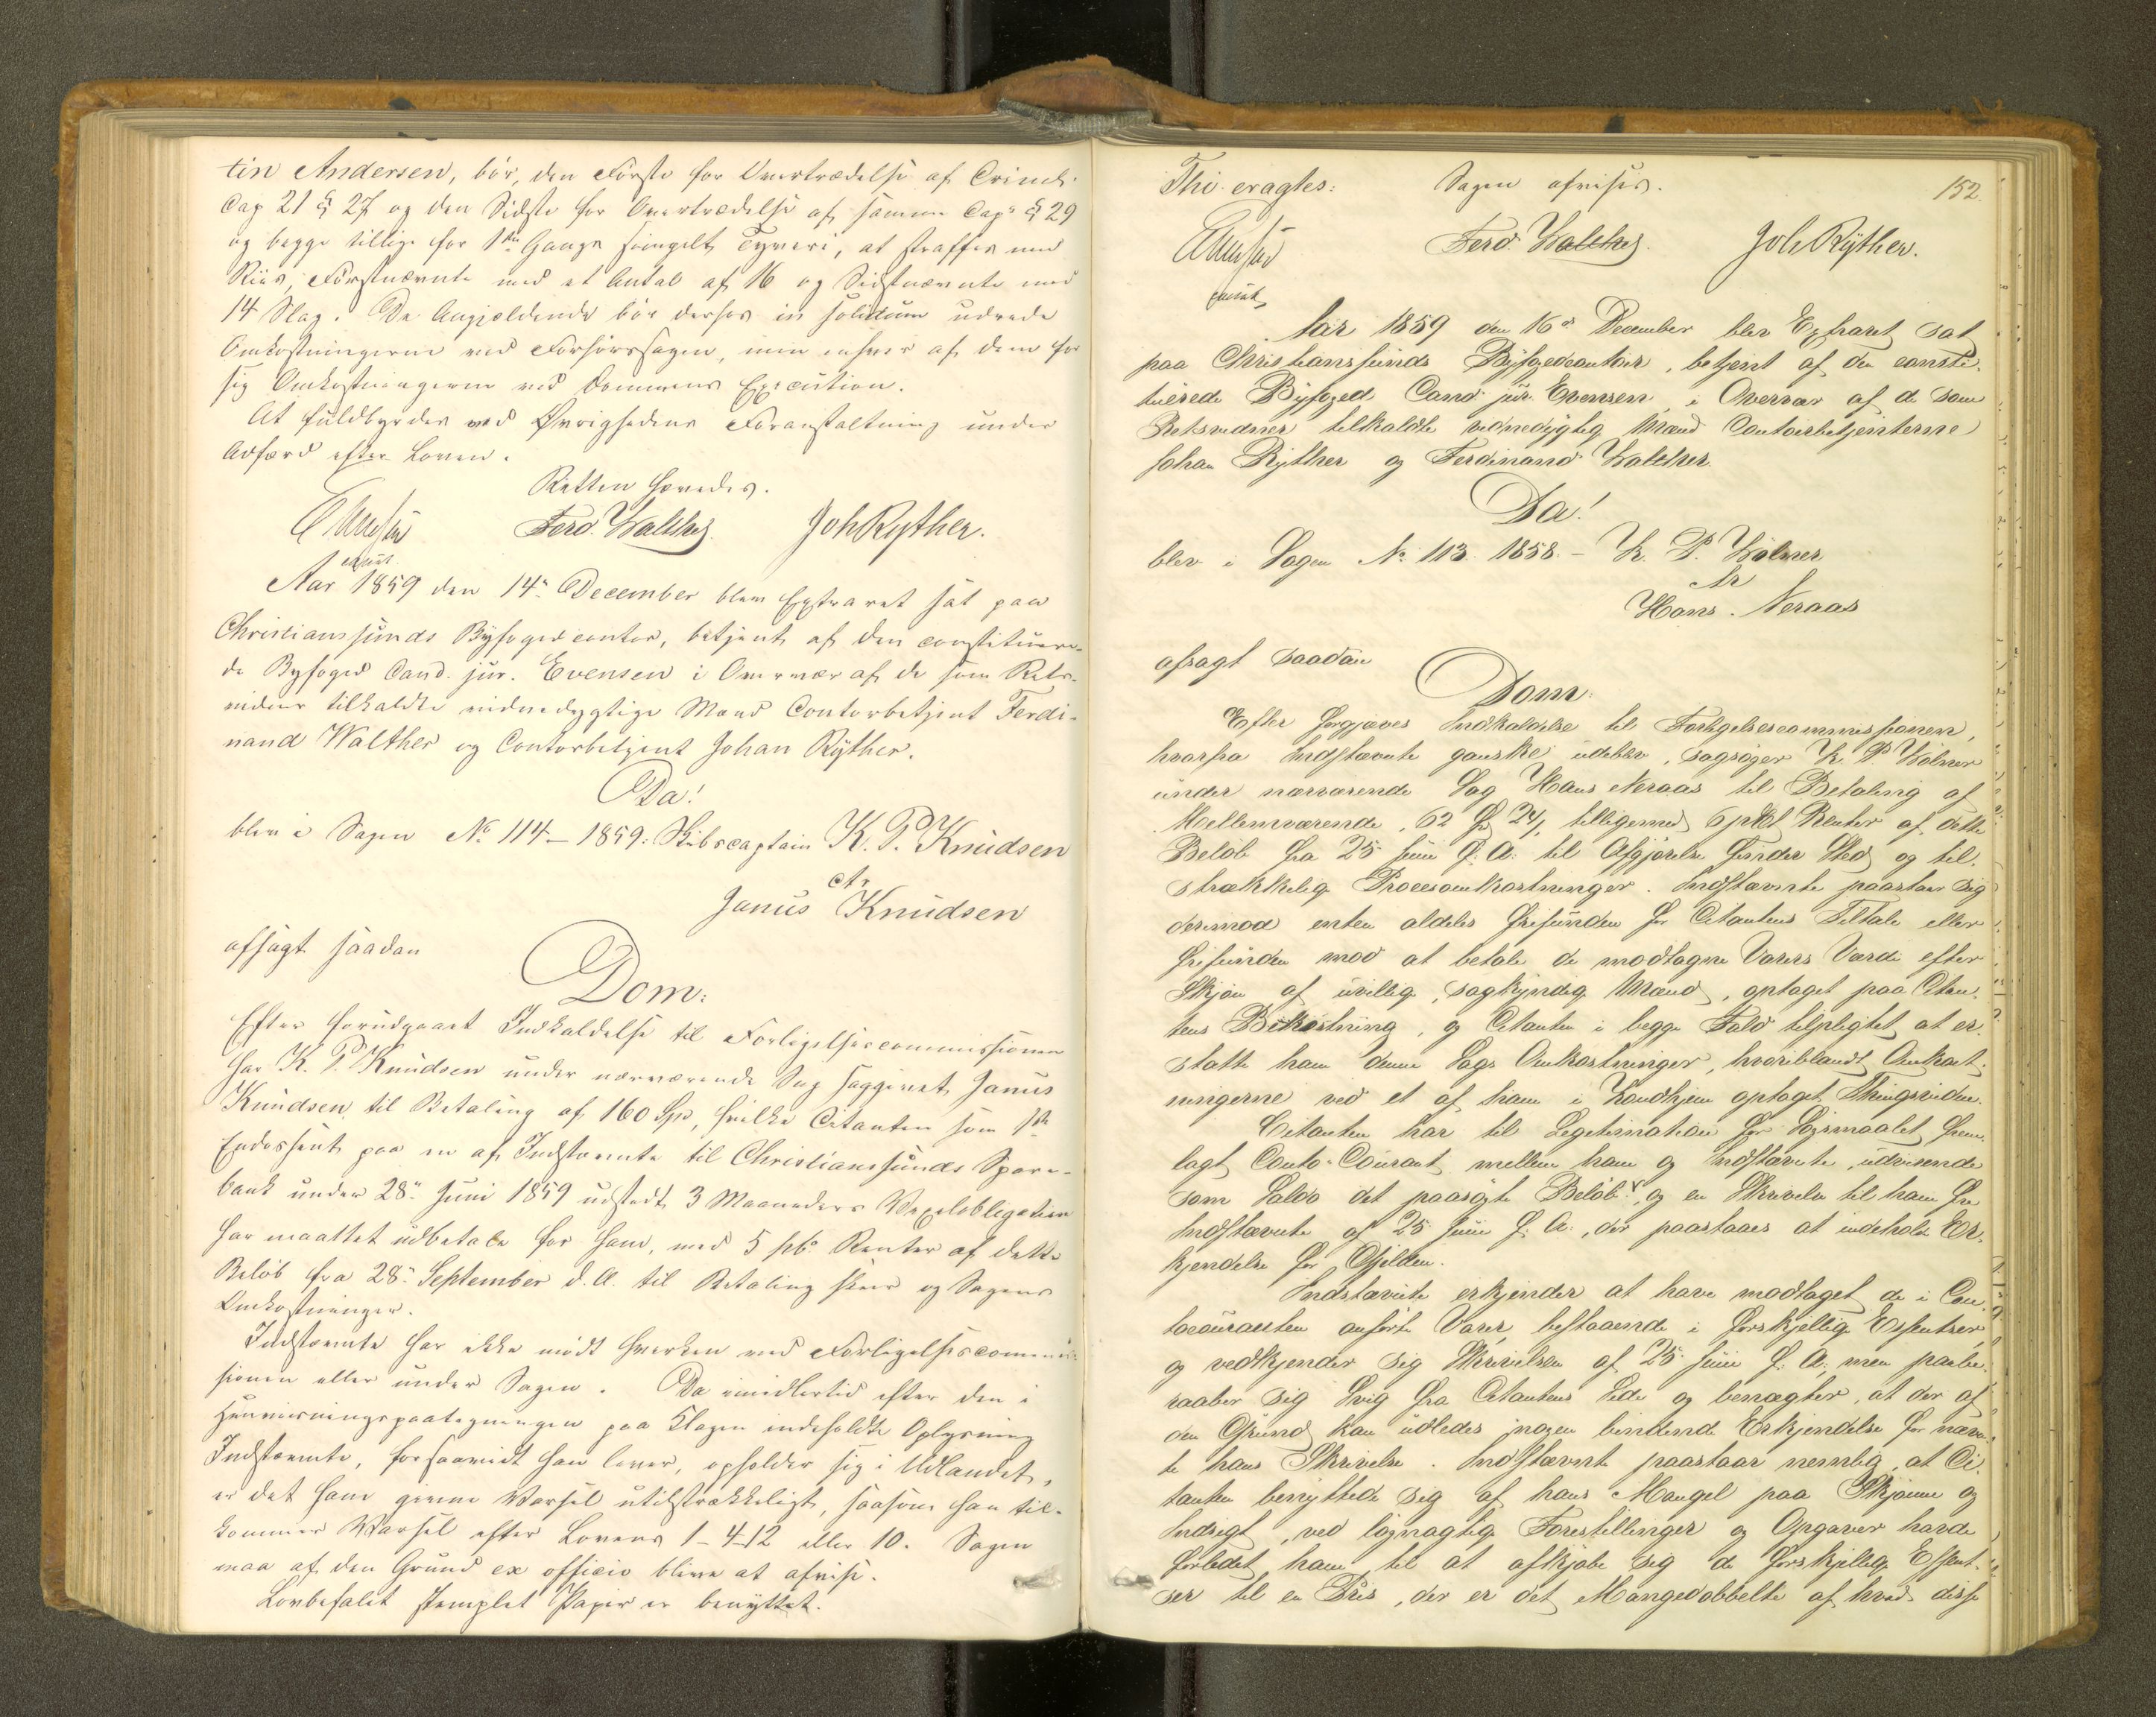 tin Andersen, bör, den Förste for Overtrædelse af Criml.
Cap 21 § 27 og den Sidste for Overtrædelse af samme Cap: § 29
og begge tillige for 1ste Gangs simpelt Tyveri, at straffes med
Riis, Förstnævnte med et Antal af 16 og Sidstnævnte med
14 Slag. De Angjældende bör derhos in solidum udrede
Omkostningerne ved Forhörssagen, men enhver af dem for
sig Omkostningerne ved Dommens Execution.
At fuldbyrdes ved Øvrighedens Foranstaltning under
Adfærd efter Loven.
Retten hævedes.
Evensen Ferd. Walther Joh Ryther.
const.
Aar 1859 den 14de December blev Extraret sat paa
Christianssunds Byfogedcontor, betjent af den constituere-
de Byfoged Cand. jur. Evensen i Overvær af de som Rets-
vidner tilkaldte vidnedygtige Mænd Contorbetjent Ferdi-
nand Walther og Contorbetjent Johan Ryther.
Da!
blev i Sagen No 114 – 1859: Skibscaptain K. P. Knudsen
ctr
Janus Knudsen
afsagt saadan
Dom:
Efter forudgaaet Indkaldelse til Forligelsescommissionen
har K. P. Knudsen under nærværende Sag saggivet Janus
Knudsen til Betaling af 160 Spd, hvilke Citanten som 1ste
Endossent paa en af Indstævnte til Christianssunds Spare-
bank under 28de Juni 1859 udstedt 3 Maaneders Vexelobligation
har maattet udbetale for ham, med 5 pCto Renter af dette
Belöb fra 28de September d. A. til Betaling skeer og Sagens
Omkostninger.
Indstævnte har ikke mödt hverken ved Forligelsescommis-
sionen eller under Sagen. Da imidlertid efter den i
Henvisningspaategningen paa Klagen indeholdte Oplysning
Indstævnte, forsaavidt han lever, opholder sig i Udlandet,
er det ham givne Varsel utilstrækkeligt, saasom han til-
kommer Varsel efter Lovens 1–4–12 eller 10. Sagen
maa af den Grund ex officio blive at afvise.
Lovbefalet stemplet Papir er benyttet.
Thi eragtes: Sagen afvises. 152.
Evensen Ferd. Walther Joh Ryther.
const
Aar 1859 den 16de December blev Extraret sat
paa Christianssunds Byfogedcontoir, betjent af den consti-
tuerede Byfoged Cand. jur. Evensen, i Overvær af de som
Retsvidner tilkaldte vidnedygtig Mænd Contoirbetjenterne
Johan Ryther og Ferdinand Walther.
Da!
blev i Sagen No 113 1858. – K. P. Volmer
ctr
Hans Neraas
afsagt saadan
Dom:
Efter forgjæves Indkaldelse til Forligelsescommissionen,
hvorfra Indstævnte ganske udeblev, sagsøger K. P Volmer
under nærværende Sag Hans Neraas til Betaling af
Mellemværende, 62 Spd 24 s, tilligemed 6 pCt Renter af dette
Belöb fra 25 Juni f. A. til Afgjørelse finder Sted og til-
strækkelig Procesomkostninger. Indstævnte paastaar sig
derimod enten aldeles frifunden for Citantens Tiltale eller
frifunden mod at betale de modtagne Varers Værdi efter
Skjøn af uvillig, sagkyndig Mænd, optaget paa Citan-
tens Bekostning, og Citanten i begge Fald tilpligtet at er-
statte ham denne Sags Omkostninger, hvoriblandt Omkost-
ningerne ved et af ham i Trondhjem optaget Thingsvidne.
Citanten har til Legetimation for Søgsmaalet frem-
lagt Conto-Courant mellem ham og Indstævnte, udvisende
som Saldo det paasögte Belöb, og en Skrivelse til ham fra
Indstævnte af 25 Juni f. A., der paastaaes at indeholde Er-
kjendelse for Gjelden.
Indstævnte erkjender at have modtaget de i Con-
tocouranten anförte Varer, bestaaende i forskjellige Essentser,
og vedkjender sig Skrivelsen af 25 Juni f. A, men paabe-
raaber sig Svig fra Citantens Side og benægter, at der af
den Grund kan udledes nogen bindende Erkjendelse for nævn-
te hans Skrivelse. Indstævnte paastaar nemlig, at Ci-
tanten benyttede sig af hans Mangel paa Skjønne og
Indsigt, ved løgnagtig Forestillinger og Opgaver havde
forledet ham til at afkjøbe sig de forskjellig Essent-
ser til en Pris, der er det Mangedobbelte af hvad disse